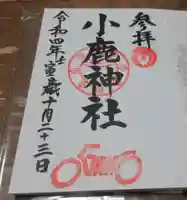 奉拝
小鹿神社
令和四年壬寅歳十月二十三日